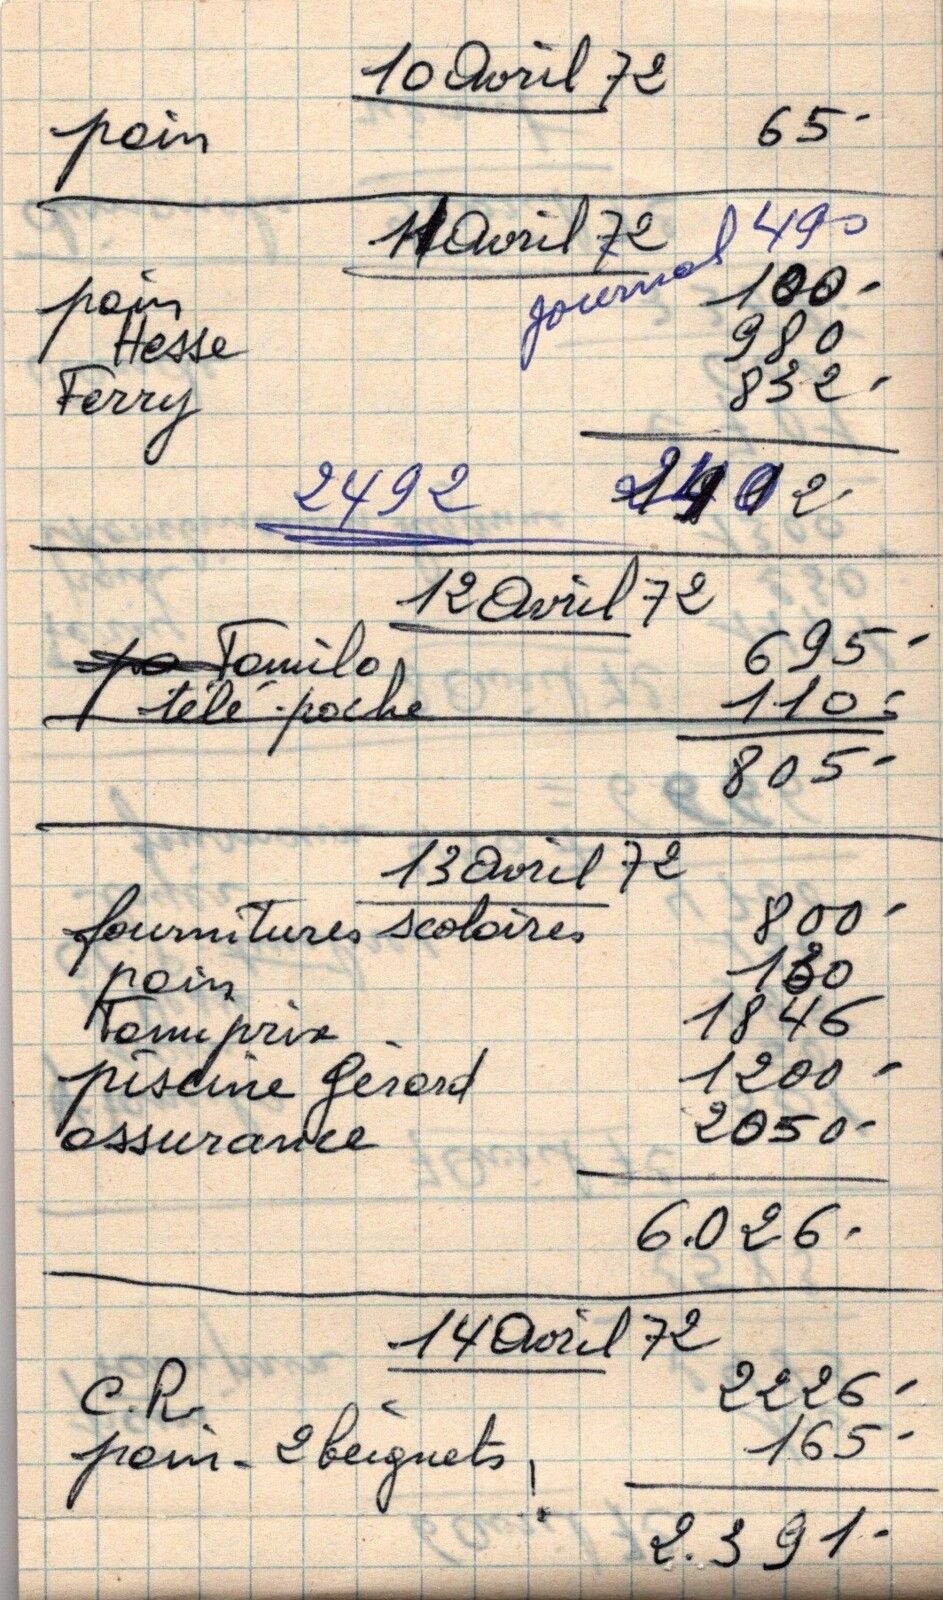 10 Avril 72
pain 65-
11 Avril 72
journal 490
pain 100-
Hesse 980
Ferry 832-
2492 2402-
12 Avril 72
Tomilo 695-
télé-poche 110-
805-
13 Avril 72
fournitures scolaires 800-
pain 130
Tomiprix 1846
piscine Gérard 1200-
assurance 2050-
6.026-
14 Avril 72
C.R. 2226-
pain - 2 beignets! 165-
2.391-